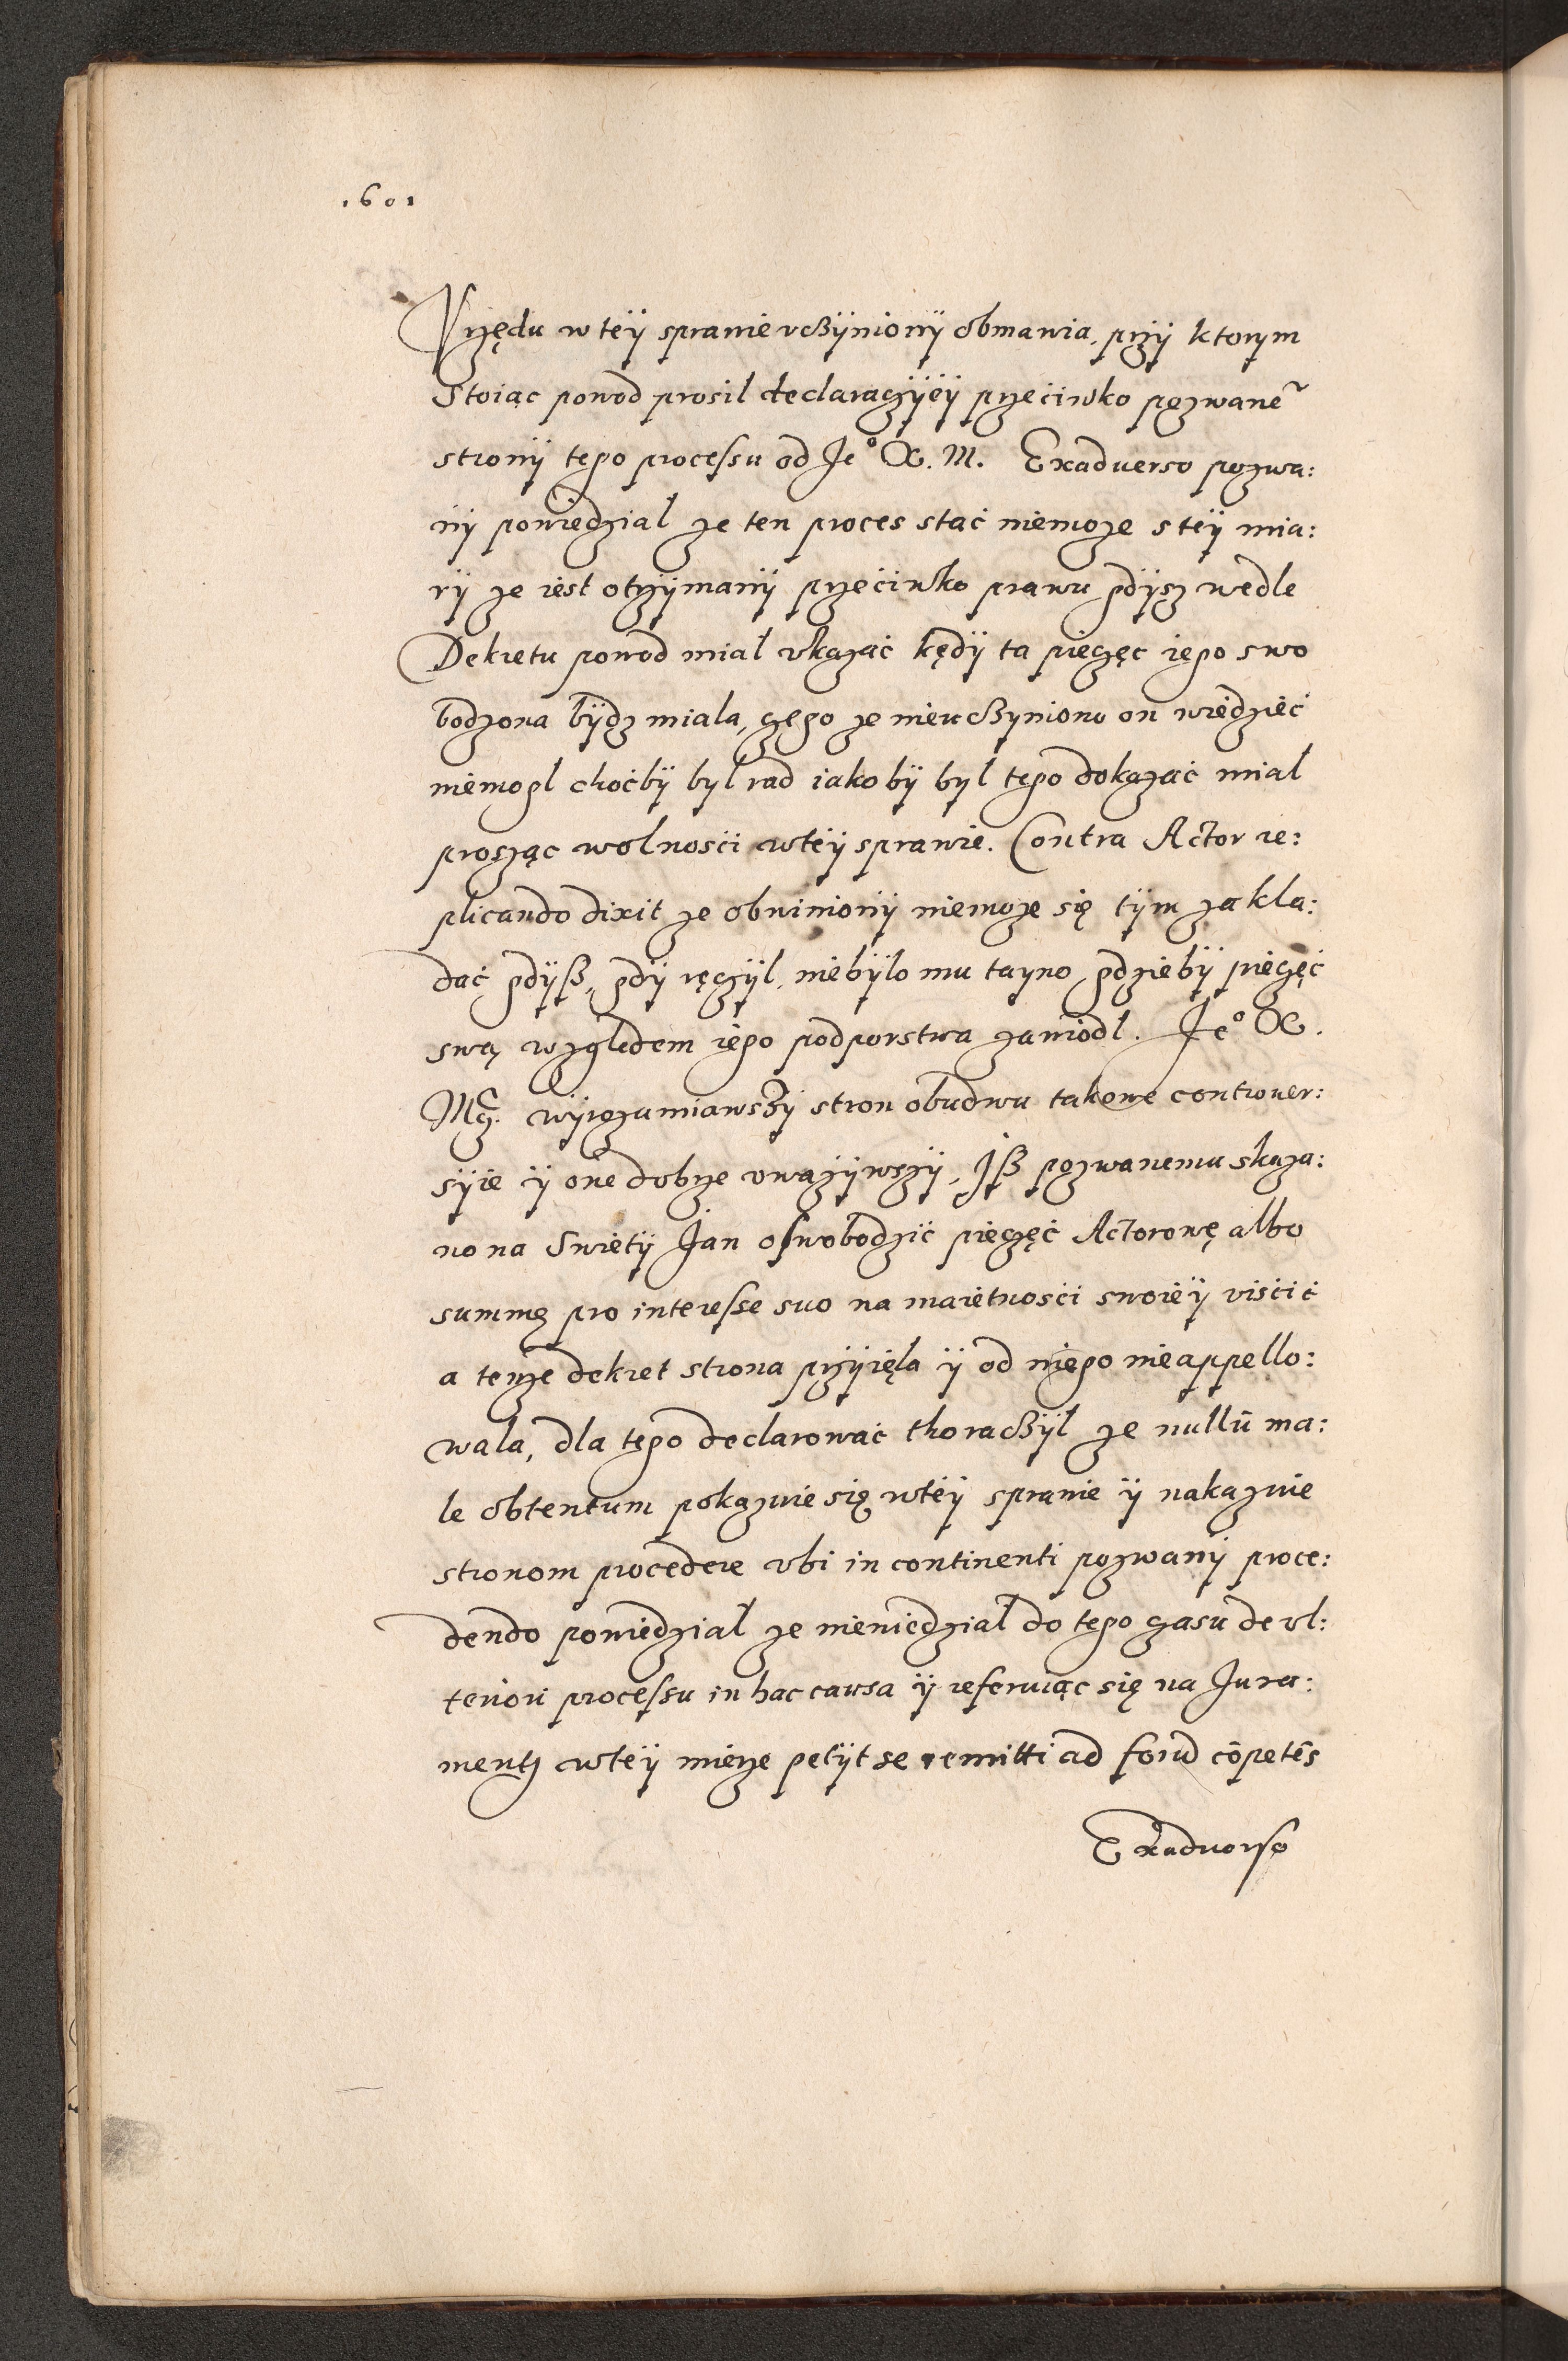 1601
Vrzędu w teÿ sprawie vcżÿnionÿ obmawia, przÿ ktorym
Stoiąc powod prosil declaracÿeÿ przeciwko pozwane͂
stronÿ tego processu od Je° X. M. Exaduerso pozwa:
nÿ powiedzial ze ten proces stać niemoze s teÿ mia:
rÿ ze iest otrzÿmanÿ przeciwko prawu gdÿsz wedle
Dekretu powod mial vkazać kędÿ ta pieczęc iego swo
bodzona bÿdz miala, czego ze nieucżyniono on wiedzieć
niemogl choćbÿ byl rad iako bÿ byl tego dokazać mial
prosząc wolnosci wteÿ sprawie. Contra Actor re:
plicando dixit ze obwinionÿ niemoze się tÿm zakla:
dać gdÿß, gdÿ ręczÿl, niebÿlo mu tayno gdziebÿ pieczęć
swą względem iego podporstwa zawiodl. Je° X.
Mcz. wÿrozumiawszÿ stron obudwu takowe controuer:
sÿie ÿ one dobrze vwazÿwszÿ, Jß pozwanemu skaza:
no na Swietÿ Jan oswobodzić pieczęć Actorowę albo
summę pro interesse suo na maietnosci swoieÿ viscić
a tenze dekret strona przÿięla ÿ od niego nieappello:
wala, dla tego declarować thoracżÿl ze nullū ma:
le obtentum pokazuie się wteÿ sprawie ÿ nakazuie
stronom procedere vbi in continenti pozwanÿ proce:
dendo powiedzial ze niewiedzial do tego czasu de vl:
teriori processu in hac causa ÿ referuiąc się na Jura:
menty wteÿ mierze petÿt se remitti ad forū cōpetēs
Exaduerso